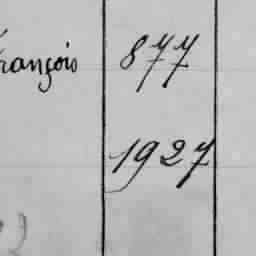 François 877
1927